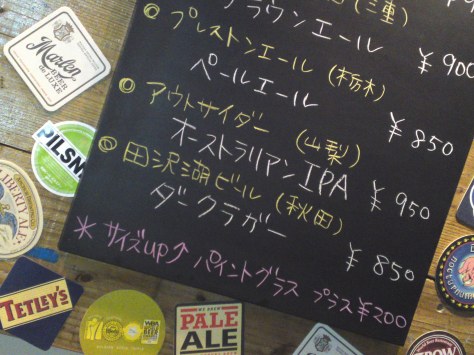 (三重)
ブラウンエール ¥900
プレストンエール (栃木)
ペールエール ¥850
アウトサイダー (山梨)
オーストラリアンIPA ¥950
田沢湖ビール (秋田)
ダークラガー ¥850
* サイズUP↑ パイントグラス プラス¥200
Marlen
BEER
DE LUXE
PILSN
LIBERTY ALE
TETLEY'S
PALE
ALE